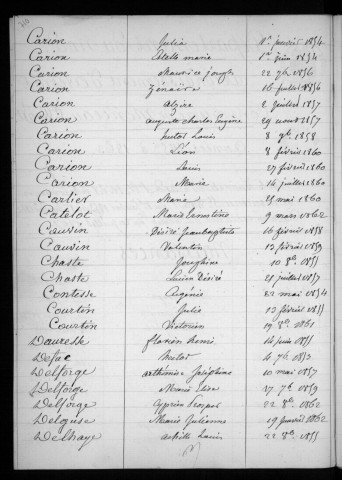 Carion Julia 1er janvier 1854
Carion Estelle marie 1er juin 1854
Carion Maurice joseph 22 7b 1856
Carion Zénaïre 16 juillet 1856
Carion Alzire 2 juillet 1857
Carion auguste charles Eugène 29 aout 1857
Carion Louis 8 9b 1858
Carion Léon 8 février 1860
Carion Louis 27 février 1860
Carion Marie 14 juillet 1860
Carlier Marie mai 1860
Catelot Marie 9 mars 1862
Cauvin Désiré Jeanbaptiste 16 février 1858
Cauvin Valentin 13 février 1859
Chaste Joséphine 10 8b 1855
Chaste Lucien Désiré juillet 1857
Contesse Eugénie mai 1854
Courtin Julie 13 février 1855
Courtin Victorien 19 8b 1861
Dauresse florian Remi 14 juin 1855
Defac 4 7b 1853
Delforge arthémise Joséphine 10 mai 1857
Delforge Marie Elise 27 7b 1859
Delforge Cyprien Prosper 22 8b 1862
Deleuse Marie Julienne 19 janvier 1862
Delhaye achille Louis 22 8b 1855